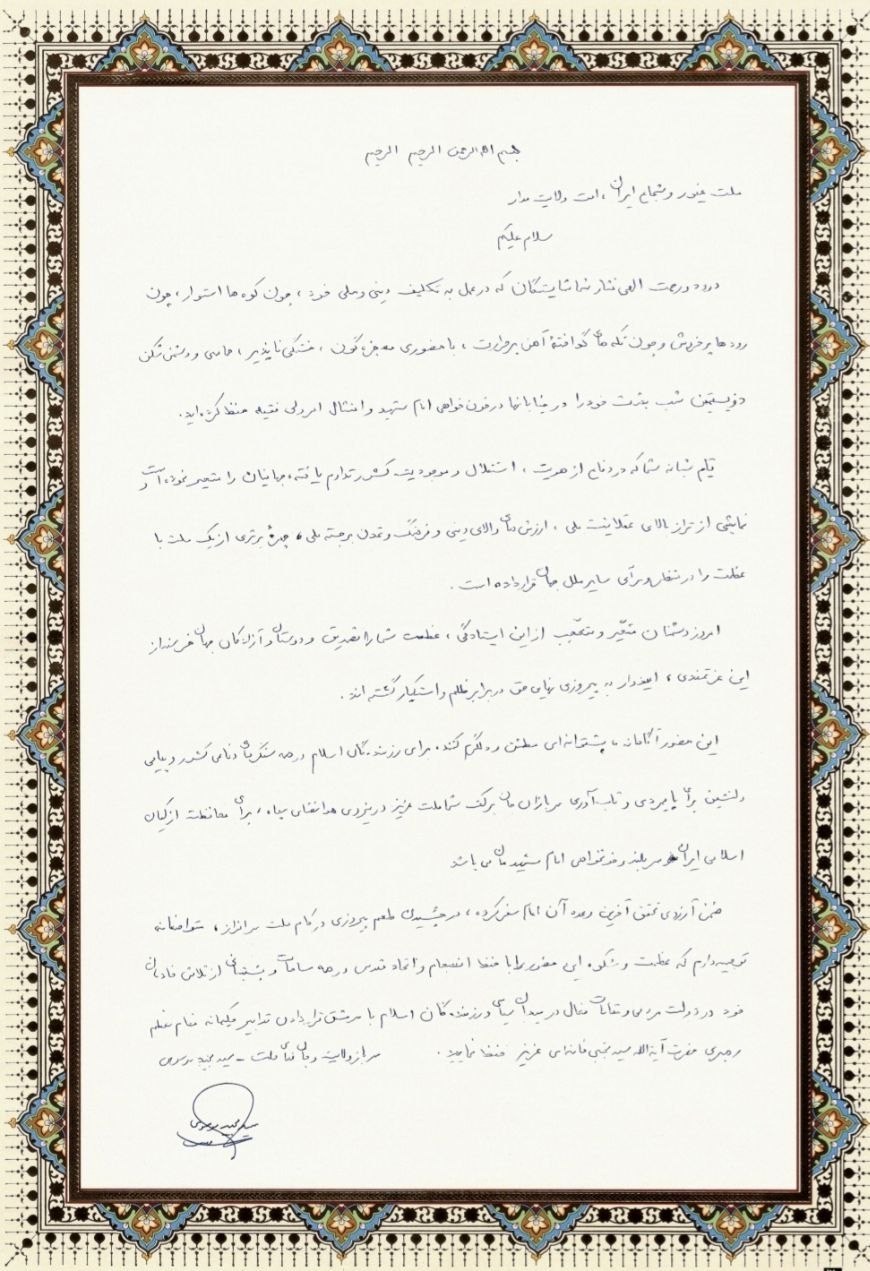 بسم الله الرحمن الرحیم
ملت غیور و شجاع ایران، امت ولایت مدار
سلام علیکم
درود و رحمت الهی نثار شما شایستگان که در عمل به تکلیف دینی و ملی خود، چون کوه ها استوار، چون
رودها پرخروش و چون تکه های گداختهٔ آهن پرحرارت، با حضوری معجزه گون، خستگی ناپذیر، حماسی و دشمن شکن
دویستمین شب بعثت خود را در خیابانها در خون خواهی امام شهید و امتثال امر ولی فقیه حفظ کرده اید.
قیام شبانه شما که در دفاع از هویت، استقلال و موجودیت کشور تداوم یافته، جهانیان را متحیر نموده است و
نمایشی از تراز بالای عقلانیت ملی، ارزش های والای دینی و فرهنگ و تمدن برجسته ملی، چهرهٔ برتری از یک ملت با
عظمت را در منظر و مرآی سایر ملل جهان قرار داده است.
امروز دشمنان متحیّر و متعجّب از این ایستادگی، عظمت شما را تصدیق و دوستان و آزادگان جهان خرسند از
این عزتمندی، امیدوار به پیروزی نهایی حق در برابر ظلم و استکبار گشته اند.
این حضور آگاهانه، پشتوانه ای مطمئن و دلگرم کننده برای رزمندگان اسلام در همه سنگرهای دفاعی کشور و پیامی
دلنشین برای پایمردی و تاب آوری سربازان جان برکف شما ملت عزیز در نیروی هوافضای سپاه، برای محافظت از کیان
اسلامی ایران سربلند و خونخواهی امام شهیدمان می باشد
ضمن آرزوی تحقق آخرین وعده آن امام سفرکرده، در چشیدن طعم پیروزی در کام ملت سرافراز، متواضعانه
توصیه دارم که عظمت و شکوه این حضور را با حفظ انسجام و اتحاد مقدس در همه ساحات و پشتیبانی از تلاش خادمان
خود در دولت مردمی و مقامات فعال در میدان سیاسی و رزمندگان اسلام با سرمشق قراردادن تدابیر حکیمانه مقام معظم
رهبری حضرت آیة الله سید مجتبی خامنه ای عزیز حفظ نمایید. سرباز ولایت و جان فدای ملت - سید مجید موسوی
سید مجید موسوی